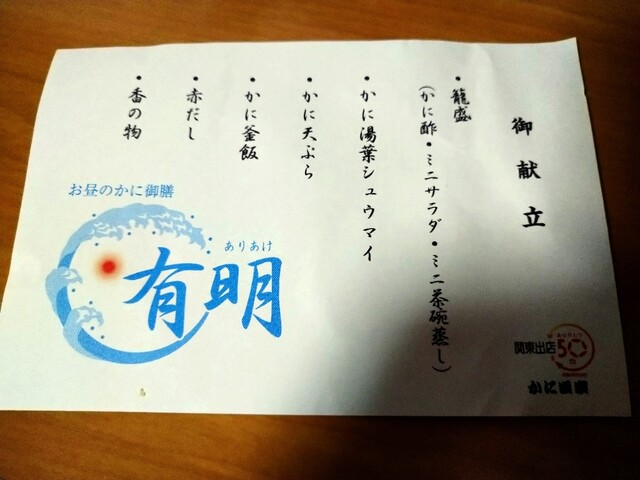 御献立
・籠盛
(かに酢・ミニサラダ・ミニ茶碗蒸し)
・かに湯葉シュウマイ
・かに天ぷら
・かに釜飯
・赤だし
・香の物
お昼のかに御膳
ありあけ
有明
関東出店
50